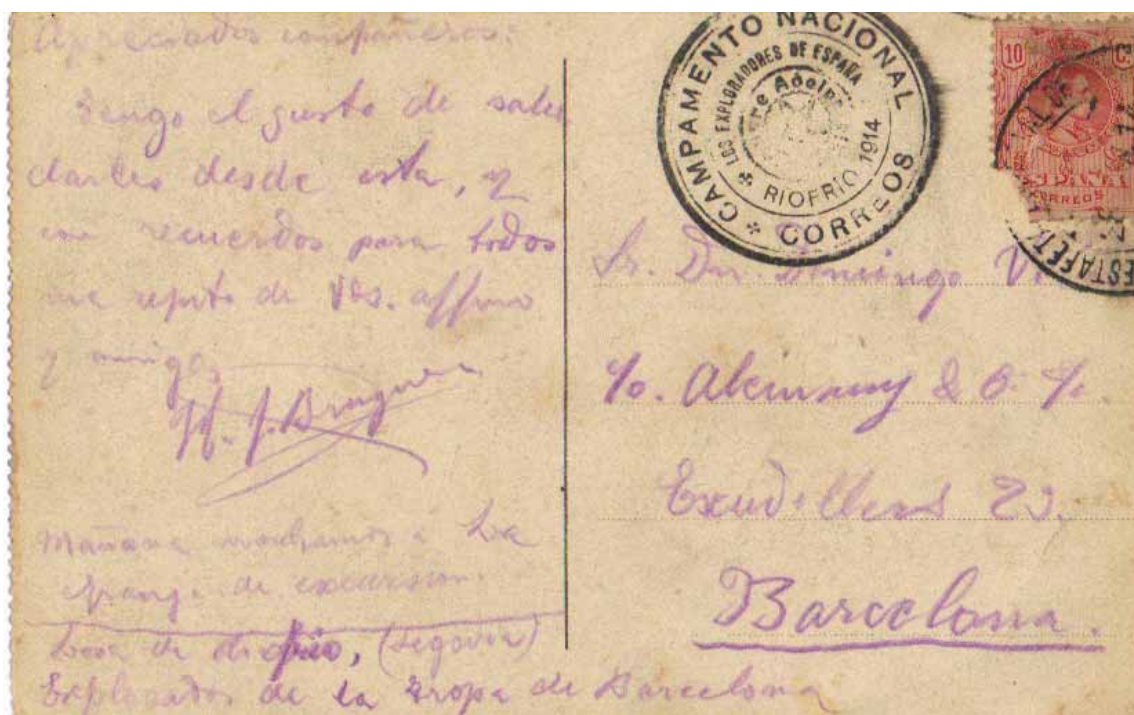 Apreciados compañeros:
Tengo el gusto de salu
darles desde esta, y
con recuerdos para todos
me repito de Vds. affmo
y amigo
J. Bruguera
Mañana marchamos a La
Granja de excursion.
de Riofrio, (Segovia)
Explorador de la Tropa de Barcelona
CAMPAMENTO NACIONAL
LOS EXPLORADORES DE ESPAÑA
RIOFRIO 1914
CORREOS
10 C.
CORREOS
ESTAFET
Sr. Dn. Domingo
%. Alemany &
Escudillers 23.
Barcelona.